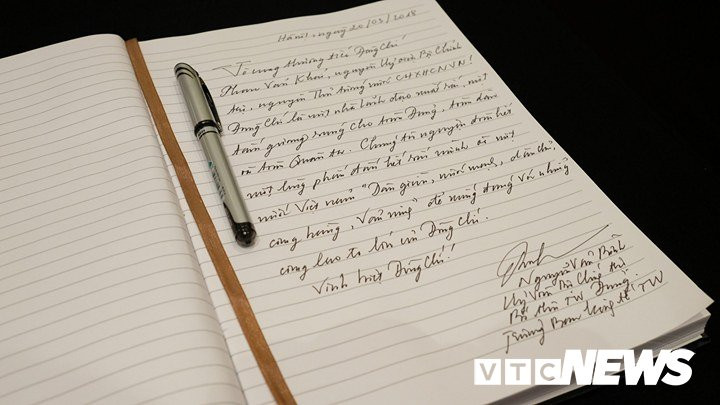 Hà nội, ngày 20/03/2018
Vô cùng thương tiếc Đồng Chí
Phan Văn Khải, nguyên Uỷ viên Bộ Chính
trị, nguyên Thủ tướng nước CHXHCNVN!
Đồng Chí là một nhà lãnh đạo xuất sắc, một
tấm gương sáng cho toàn Đảng, toàn dân
và toàn Quân ta. Chúng tôi nguyện đoàn kết
một lòng phấn đấu hết sức mình vì một
nước Việt nam "Dân giàu, nước mạnh, dân chủ,
công bằng, Văn minh" để xứng đáng với những
công lao to lớn của Đồng Chí.
Vĩnh biệt Đồng Chí!
Nguyễn Văn Bình
Uỷ Viên Bộ Chính trị
Bí thư TW Đảng
Trưởng Ban kinh tế TW
VTC NEWS